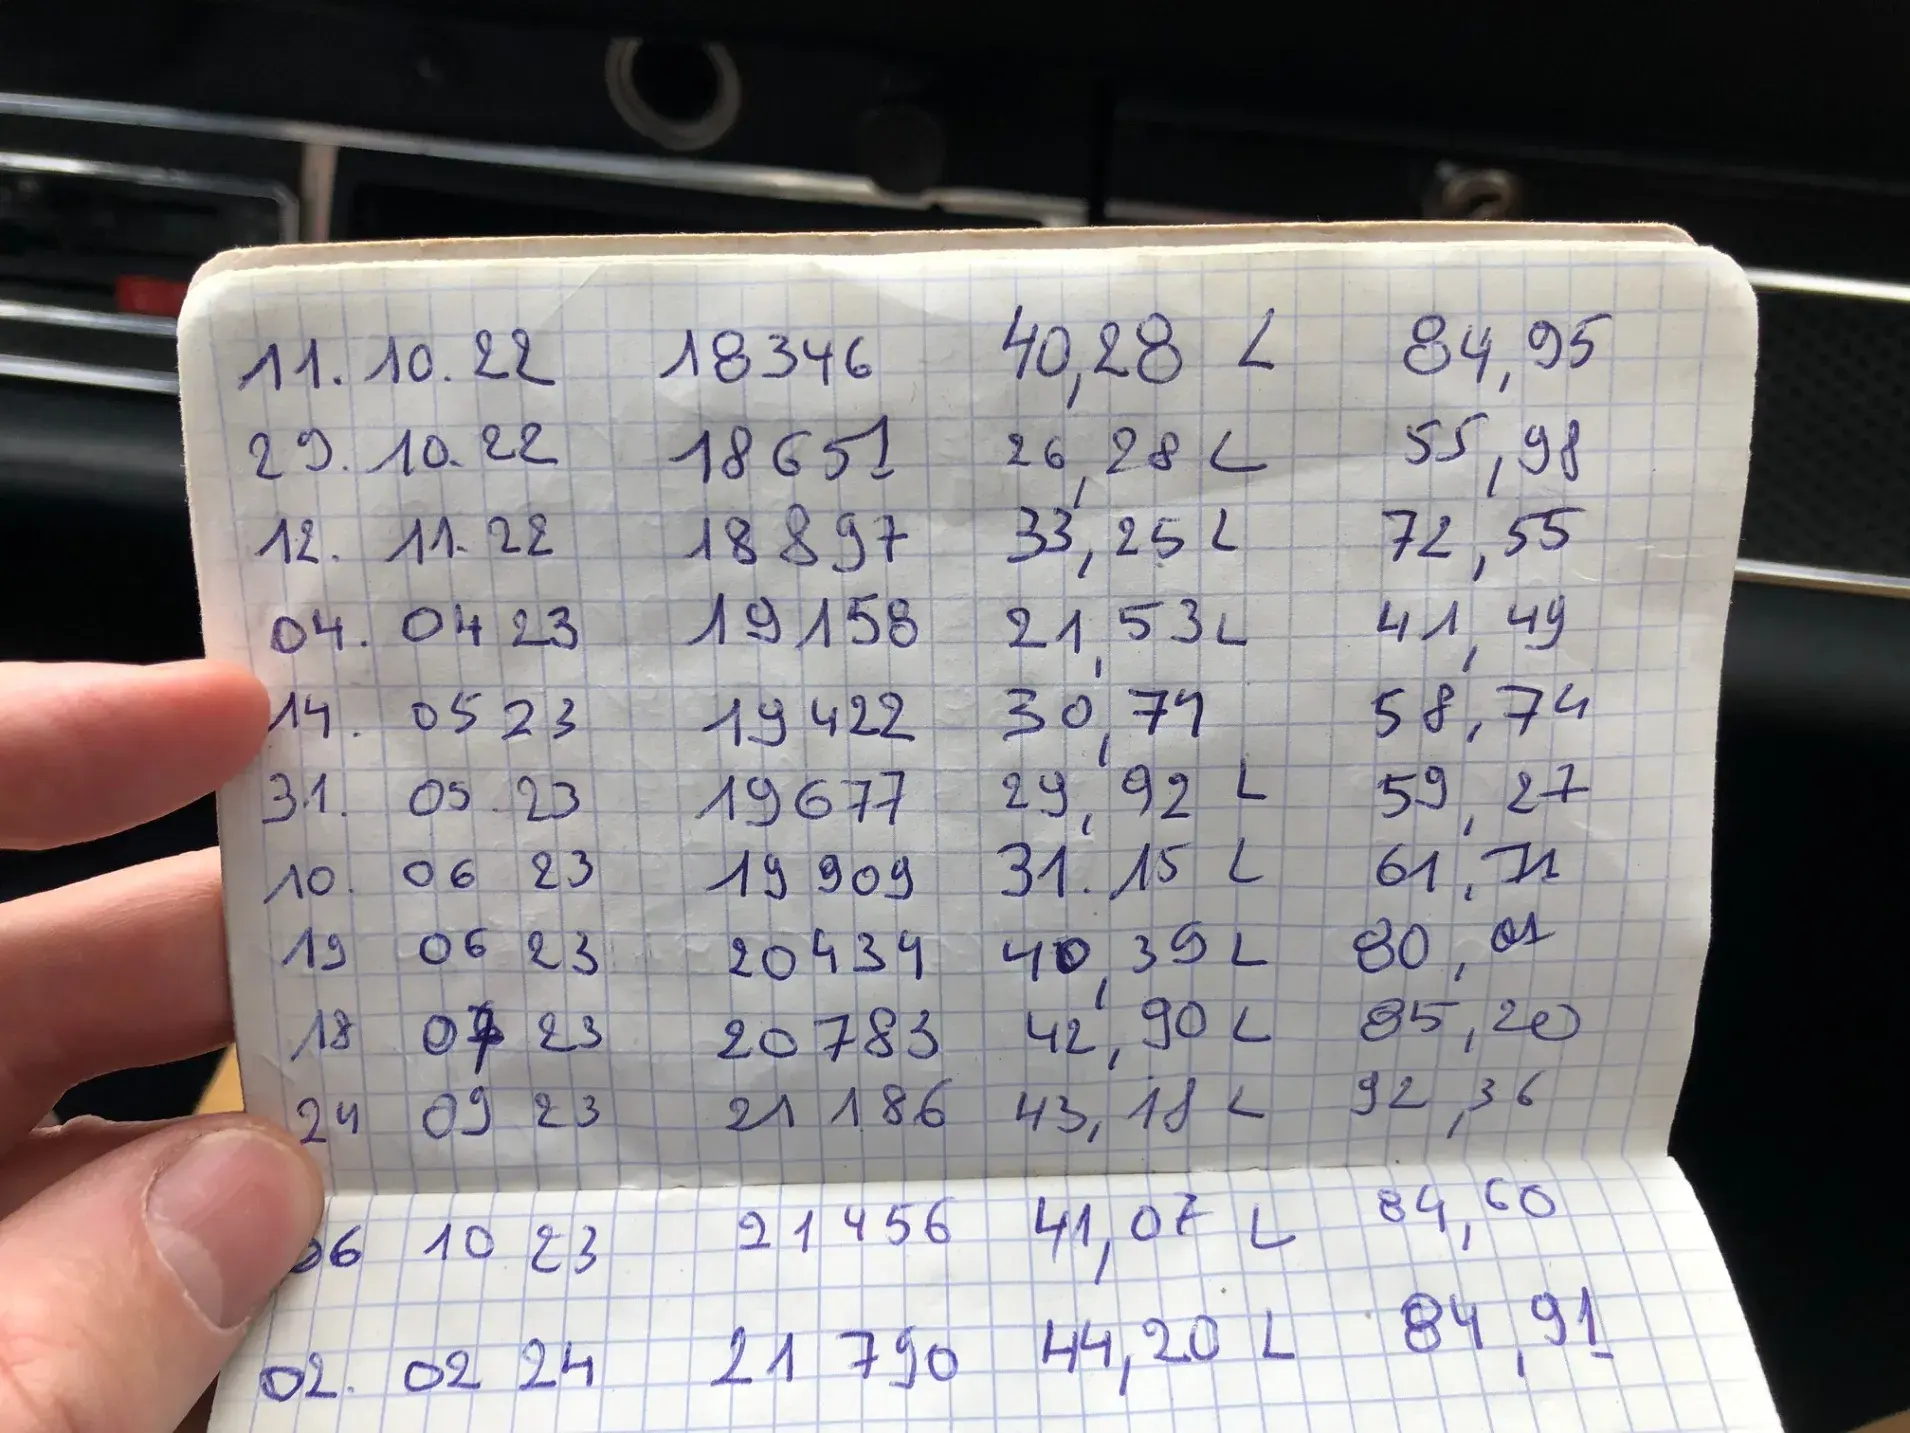 11. 10. 22 18346 40,28 L 84,95
29. 10. 22 18651 26,28 L 55,98
12. 11. 22 18897 33,25 L 72,55
04. 04 23 19158 21,53 L 41,49
14. 05 23 19422 30,74 58,74
31. 05. 23 19677 29,92 L 59,27
10. 06 23 19909 31.15 L 61,71
19 06 23 20434 40,39 L 80,01
18 07 23 20783 42,90 L 85,20
24 09 23 21186 43,18 L 92,36
06 10 23 21456 41,07 L 84,60
02. 02 24 21790 44,20 L 84,91